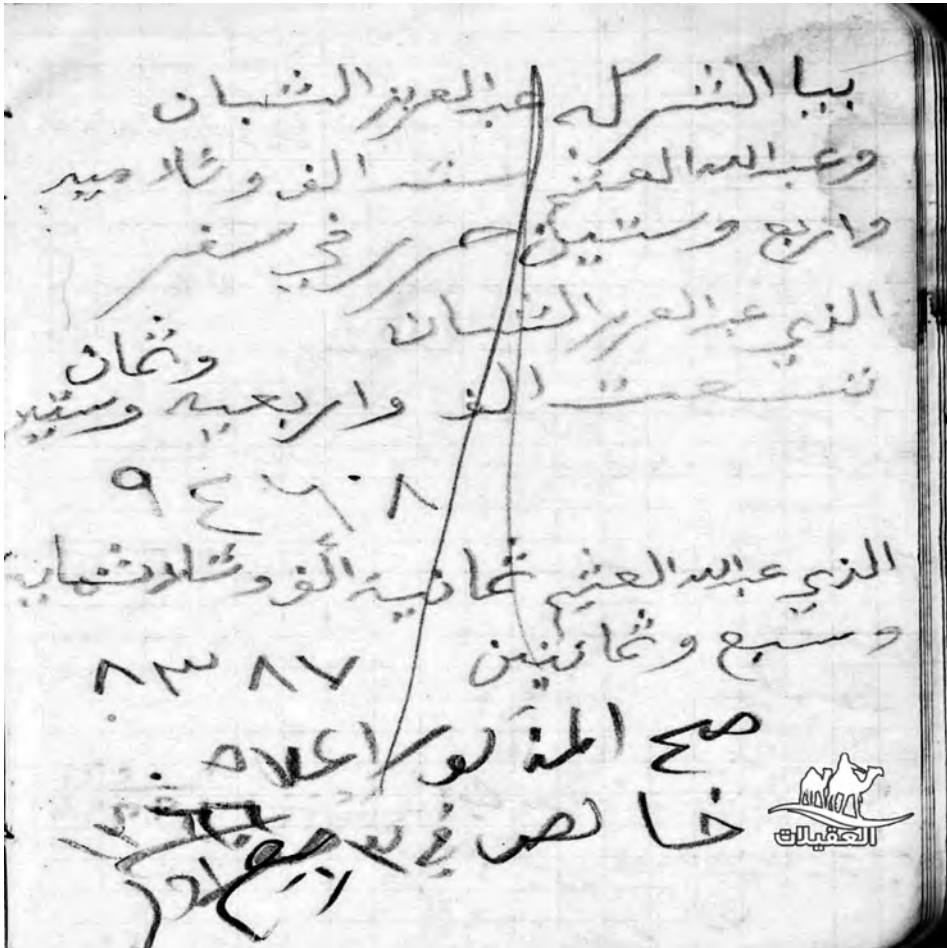 بيا الشركه عبدالعزيز الشبان
وعبدالله العثيم ستت الف وثلاميه
واربع وستين حرر في سفر
الذي عبدالعزيز الشبان
وثمان
تسعت الف واربعميه وستين
٩٤٦٠٨
الذي عبدالله العثيم ثمانية ألف وثلاثماية
وسبع وثمانين ٨٣٨٧
صح المذكور اعلاه
خالص في رجب
العقيلات